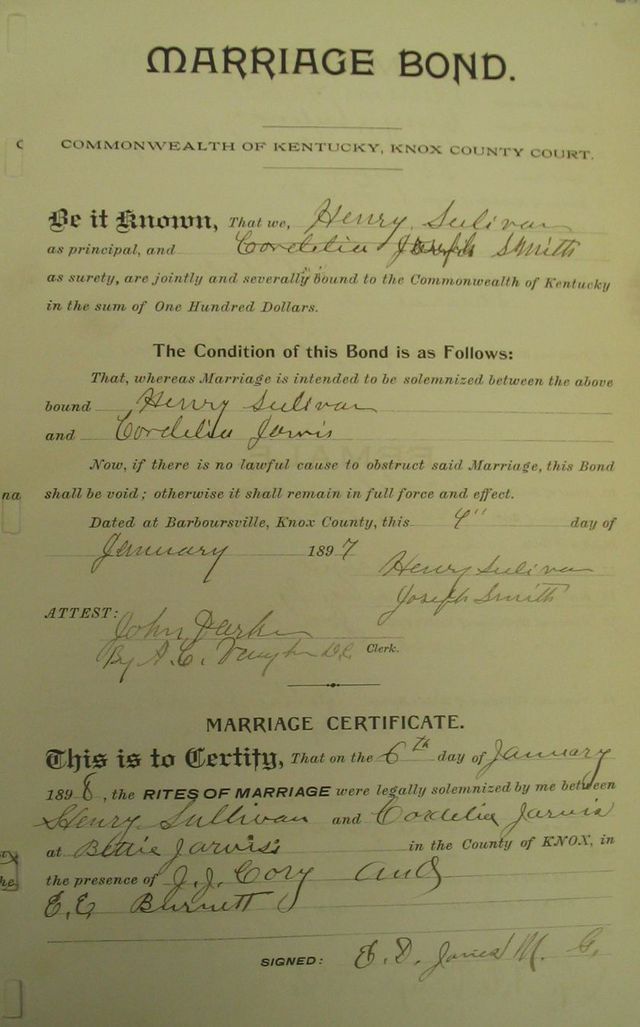 MARRIAGE BOND.
COMMONWEALTH OF KENTUCKY, KNOX COUNTY COURT.
Be it Known, That we, Henry Sulivan
as principal, and Cordelia Joseph Smith
as surety, are jointly and severally bound to the Commonwealth of Kentucky
in the sum of One Hundred Dollars.
The Condition of this Bond is as Follows:
That, whereas Marriage is intended to be solemnized between the above
bound Henry Sulivan
and Cordelia Jarvis
Now, if there is no lawful cause to obstruct said Marriage, this Bond
na
shall be void; otherwise it shall remain in full force and effect.
Dated at Barboursville, Knox County, this 4" day of
January 1897
Henry Sulivan
Joseph Smith
ATTEST:
John Parker
By A. C. D.C. Clerk.
MARRIAGE CERTIFICATE.
This is to Certify, That on the 6th day of January
1898, the RITES OF MARRIAGE were legally solemnized by me between
Henry Sullivan and Cordelia Jarvis
at Bettie Jarvis's in the County of KNOX, in
he
the presence of J. J. Cory and
E. E. Burnett
SIGNED: E. D. Jones M. G.